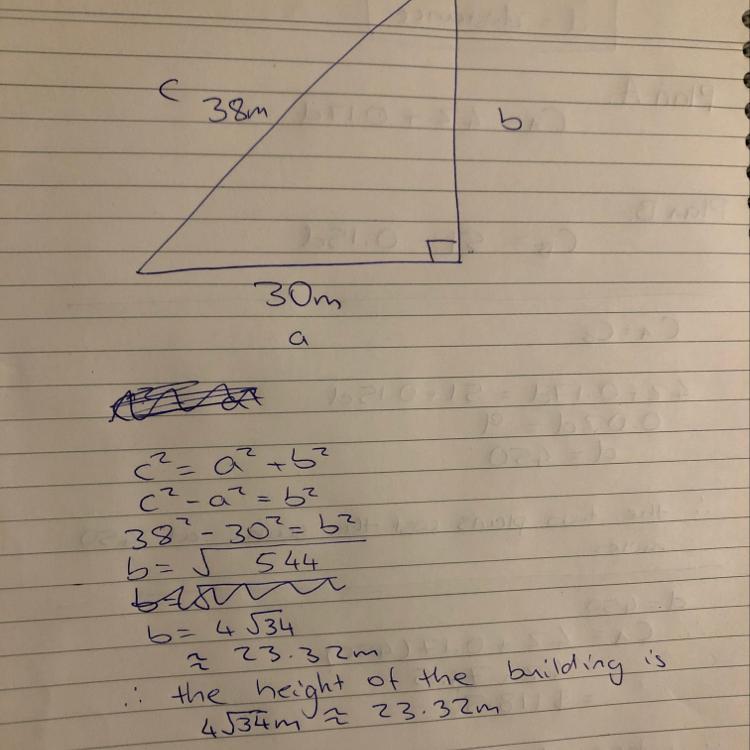 c
38m
b
30m
a
c² = a² + b²
c² - a² = b²
38² - 30² = b²
b = √544
b = 4√34
≈ 23.32m
∴ the height of the building is
4√34m ≈ 23.32m